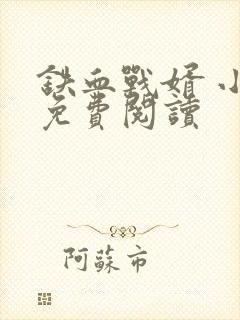 鉄血戰婿 小
免費閱讀
阿蘇市